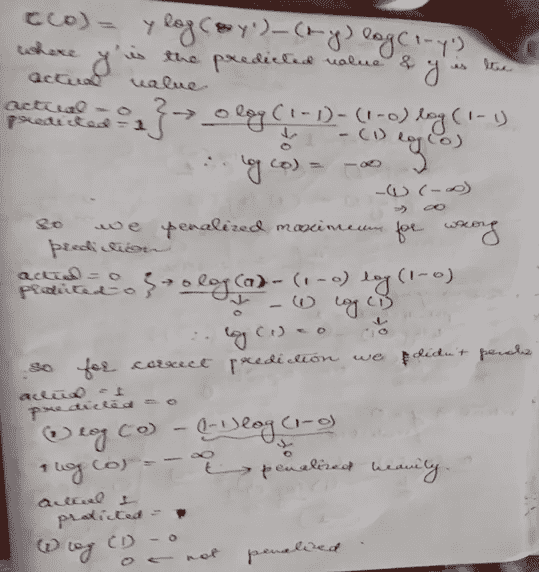 C(O) = y log(y') - (1-y) log(1-y')
where y' is the predicted value & y is the
actual value
actual = 0
predicted = 1 } → 0 log(1-1) - (1-0) log(1-1)
↓
0 - (1) log(0)
∴ log(0) = -∞
-(1) (-∞)
⇒ ∞
so we penalized maximum for wrong
prediction
actual = 0
predicted = 0 } → 0 log( ) - (1-0) log(1-0)
↓
0 - (1) log(1)
∴ log(1) = 0 ↓ 0
so for correct prediction we didn't
actual = 1
predicted = 0
(1) log(0) - (1-1) log(1-0)
↓
0
1 log(0) = -∞
↳ penalized heavily.
actual 1
predicted =
(1) log(1) - 0
0 ← not penalized.